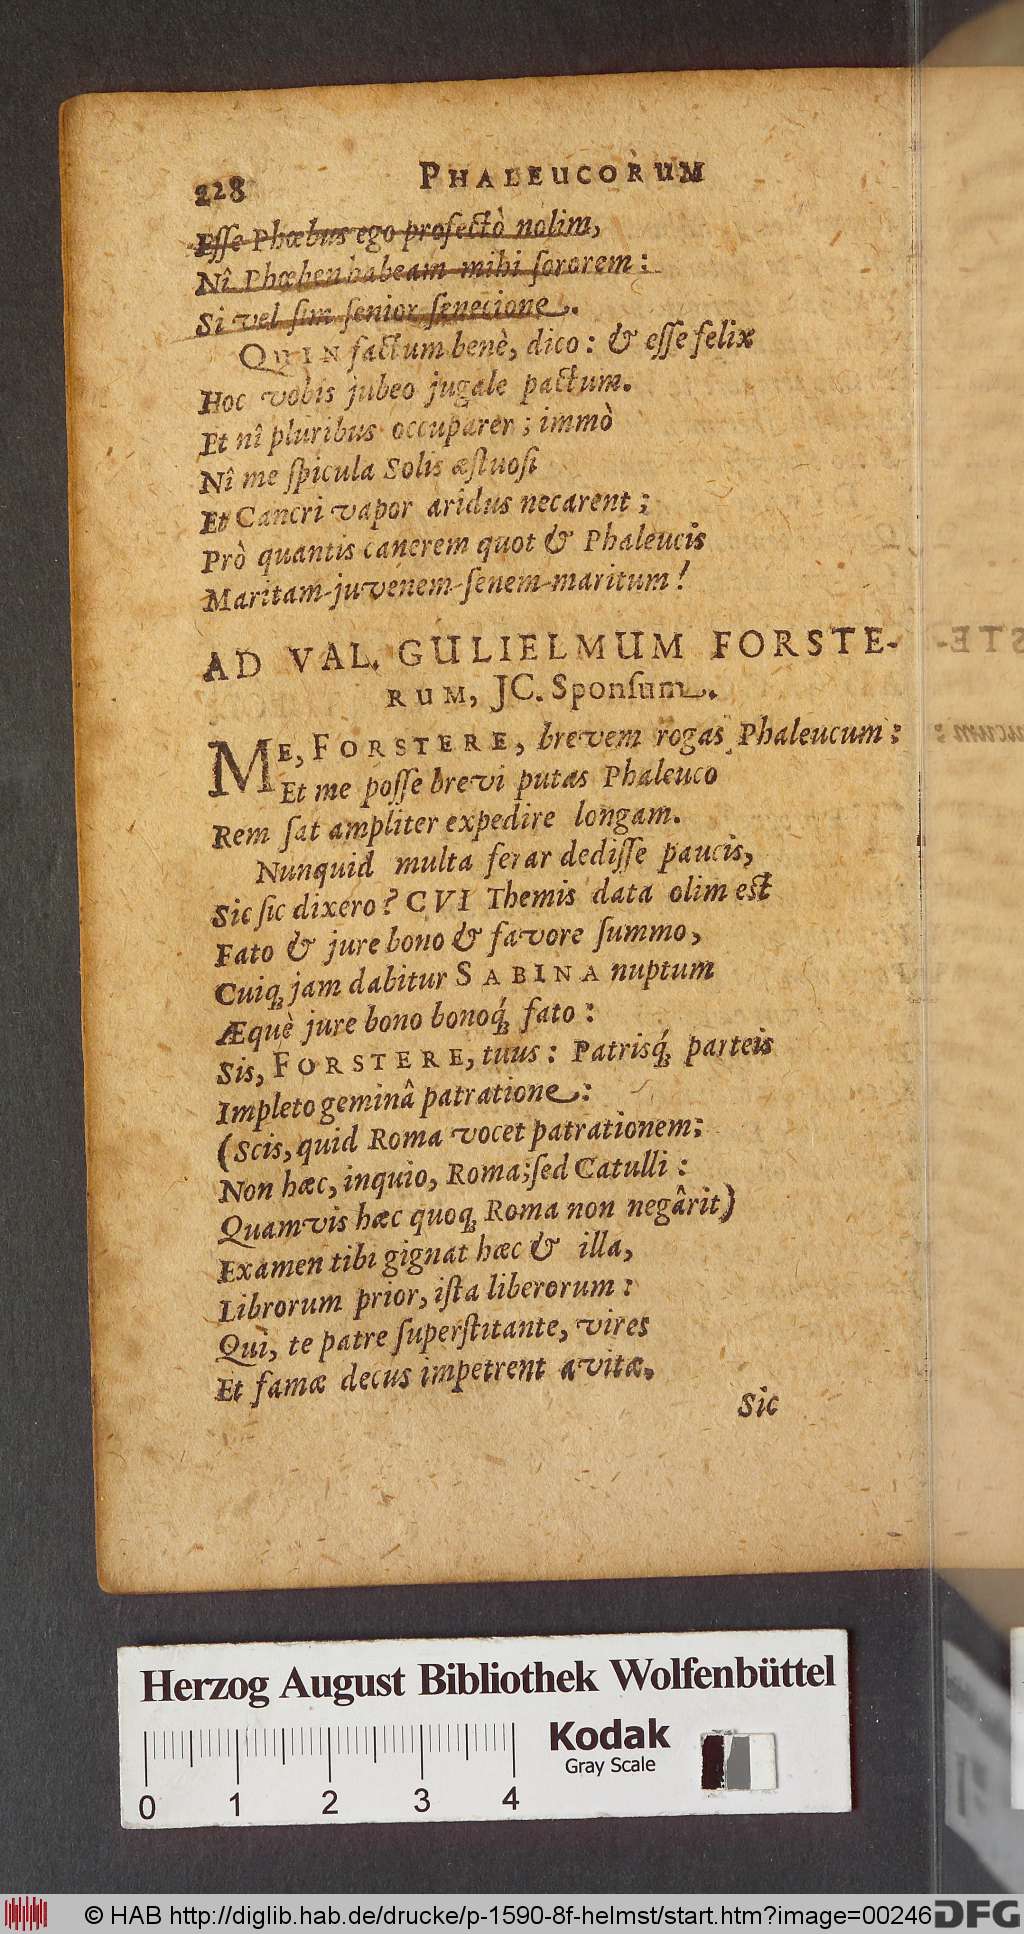 228 PHALEUCORUM
Eſſe Phœbus ego profectò nolim,
Nî Phœben habeam mihi ſororem:
Si vel ſim ſenior ſenecione.
QUIN factum benè, dico: & eſſe felix
Hoc vobis jubeo jugale pactum.
Et nî pluribus occuparer; immò
Nî me ſpicula Solis æſtuoſi
Et Cancri vapor aridus necarent;
Prò quantis canerem quot & Phaleucis
Maritam-juvenem-ſenem-maritum!
AD VAL. GULIELMUM FORSTE-
RUM, JC. Sponſum.
ME, FORSTERE, brevem rogas Phaleucum:
Et me poſſe brevi putas Phaleuco
Rem ſat ampliter expedire longam.
Nunquid multa ferar dediſſe paucis,
Sic ſic dixero? CVI Themis data olim est
Fato & jure bono & favore ſummo,
Cuiq; jam dabitur SABINA nuptum
Æquè jure bono bonoq́; fato:
Sis, FORSTERE, tuus: Patrisq́; parteis
Impleto geminâ patratione:
(Scis, quid Roma vocet patrationem;
Non hæc, inquio, Roma; ſed Catulli:
Quamvis hæc quoq; Roma non negârit)
Examen tibi gignat hæc & illa,
Librorum prior, iſta liberorum:
Quì, te patre ſuperſtitante, vires
Et famæ decus impetrent avitæ.
Sic
Herzog August Bibliothek Wolfenbüttel
Kodak
Gray Scale
0 1 2 3 4
© HAB http://diglib.hab.de/drucke/p-1590-8f-helmst/start.htm?image=00246
DFG